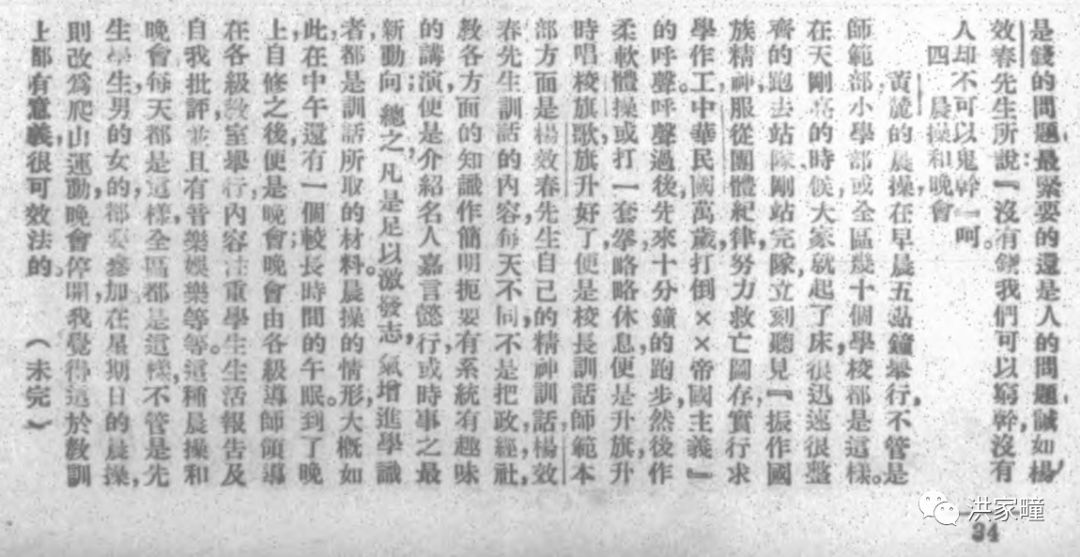 是錢的問題，最緊要的還是人的問題，誠如楊
效春先生所說『沒有錢我們可以窮幹，沒有
人却不可以鬼幹』呵。
四　晨操和晚會
黃麓的晨操，在早晨五點鐘舉行，不管是
師範部，小學部，或全區幾十個學校都是這樣。
在天剛亮的時候，大家就起了床，很迅速很整
齊的跑去站隊，剛站完隊，立刻聽見『振作國
族精神，服從團體紀律，努力救亡圖存，實行求
學作工，中華民國萬歲，打倒××帝國主義』
的呼聲。呼聲過後，先來十分鐘的跑步，然後作
柔軟體操，或打一套拳，略略休息，便是升旗，升
時唱校旗歌，旗升好了，便是校長訓話，師範本
部方面是楊效春先生自己的精神訓話，楊效
春先生訓話的內容，每天不同，不是把政，經，社，
教各方面的知識作簡明扼要有系統有趣味
的講演，便是介紹名人嘉言懿行，或時事之最
新動向，總之，凡是足以激發志氣，增進學識
者，都是訓話所取的材料。晨操的情形大概如
此，在中午還有一個較長時間的午眠。到了晚
上自修之後，便是晚會，晚會由各級導師領導
在各級教室舉行，內容注重學生生活報告及
自我批評，並且有音樂娛樂等等。這種晨操和
晚會，每天都是這樣，全區都是這樣，不管是先
生學生，男的女的，都要參加，在星期日的晨操，
則改爲爬山運動，晚會停開，我覺得這於教訓
上都有意義，很可效法的。　（未完）
34
洪家疃